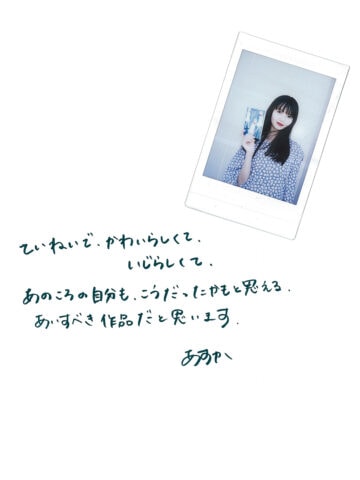 ていねいで、かわいらしくて、
いじらしくて、
あのころの自分も、こうだったかもと思える、
あいすべき作品だと思います。
あすか